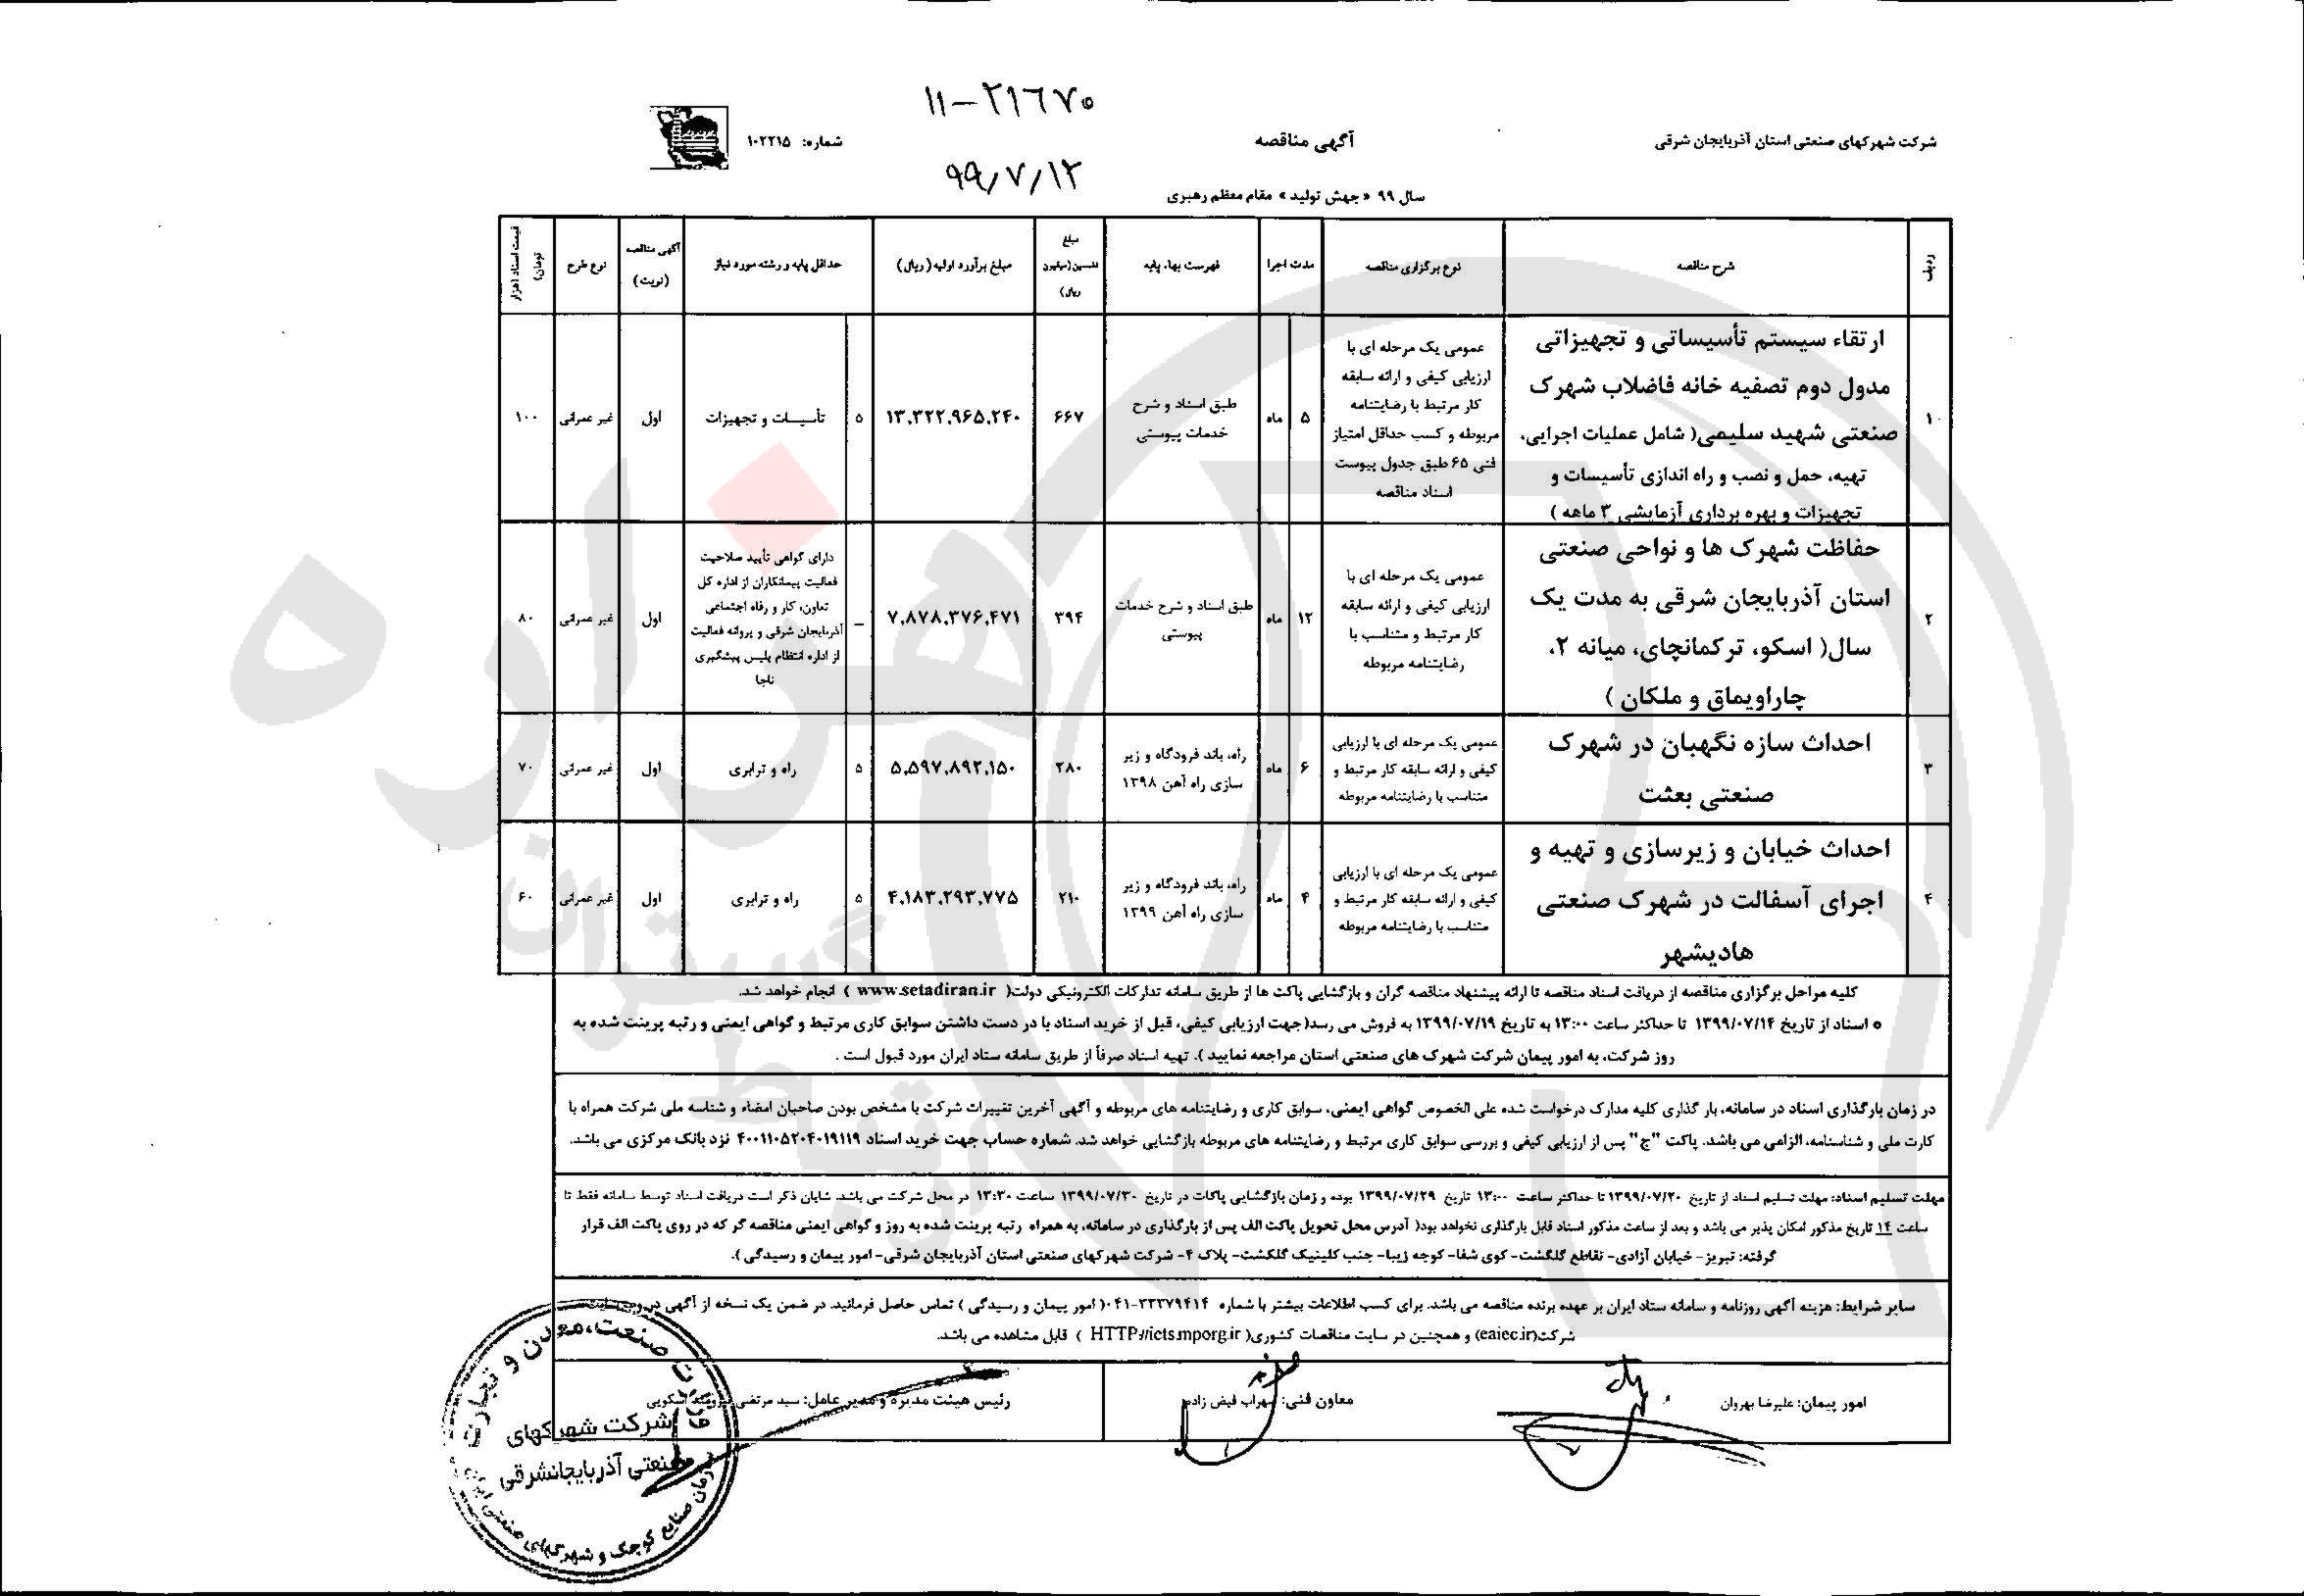 ۱۱-۲۱۶۷۰
شرکت شهرکهای صنعتی استان آذربایجان شرقی
آگهی مناقصه
شماره: ۱۰۲۲۱۵
۹۹/۷/۱۲
سال ۹۹ « جهش تولید » مقام معظم رهبری
ردیف
شرح مناقصه
نوع برگزاری مناقصه
مدت اجرا
فهرست بهاء پایه
مبلغ
تضمین(میلیون
ریال)
مبلغ برآورد اولیه( ریال)
حداقل پایه و رشته مورد نیاز
آگهی مناقصه
(نوبت)
نوع طرح
قیمت اسناد (هزار
تومان)
۱
ارتقاء سیستم تأسیساتی و تجهیزاتی
مدول دوم تصفیه خانه فاضلاب شهرک
صنعتی شهید سلیمی( شامل عملیات اجرایی،
تهیه، حمل و نصب و راه اندازی تأسیسات و
تجهیزات و بهره برداری آزمایشی ۳ ماهه )
عمومی یک مرحله ای با
ارزیابی کیفی و ارائه سابقه
کار مرتبط با رضایتنامه
مربوطه و کسب حداقل امتیاز
فنی ۶۵ طبق جدول پیوست
اسناد مناقصه
۵
ماه
طبق اسناد و شرح
خدمات پیوستی
۶۶۷
۱۳,۳۲۲,۹۶۵,۲۴۰
۵
تأسیسات و تجهیزات
اول
غیر عمرانی
۱۰۰
۲
حفاظت شهرک ها و نواحی صنعتی
استان آذربایجان شرقی به مدت یک
سال( اسکو، ترکمانچای، میانه ۲،
چاراویماق و ملکان )
عمومی یک مرحله ای با
ارزیابی کیفی و ارائه سابقه
کار مرتبط و متناسب با
رضایتنامه مربوطه
۱۲
ماه
طبق اسناد و شرح خدمات
پیوستی
۳۹۴
۷,۸۷۸,۳۷۶,۴۷۱
–
دارای گواهی تأیید صلاحیت
فعالیت پیمانکاران از اداره کل
تعاون، کار و رفاه اجتماعی
آذربایجان شرقی و پروانه فعالیت
از اداره انتظام پلیس پیشگیری
ناجا
اول
غیر عمرانی
۸۰
۳
احداث سازه نگهبان در شهرک
صنعتی بعثت
عمومی یک مرحله ای با ارزیابی
کیفی و ارائه سابقه کار مرتبط و
متناسب با رضایتنامه مربوطه
۶
ماه
راه، باند فرودگاه و زیر
سازی راه آهن ۱۳۹۸
۲۸۰
۵,۵۹۷,۸۹۲,۱۵۰
۵
راه و ترابری
اول
غیر عمرانی
۷۰
۴
احداث خیابان و زیرسازی و تهیه و
اجرای آسفالت در شهرک صنعتی
هادیشهر
عمومی یک مرحله ای با ارزیابی
کیفی و ارائه سابقه کار مرتبط و
متناسب با رضایتنامه مربوطه
۴
ماه
راه، باند فرودگاه و زیر
سازی راه آهن ۱۳۹۹
۲۱۰
۴,۱۸۳,۲۹۳,۷۷۵
۵
راه و ترابری
اول
غیر عمرانی
۶۰
کلیه مراحل برگزاری مناقصه از دریافت اسناد مناقصه تا ارائه پیشنهاد مناقصه گران و بازگشایی پاکت ها از طریق سامانه تدارکات الکترونیکی دولت( www.setadiran.ir ) انجام خواهد شد.
* اسناد از تاریخ ۱۳۹۹/۰۷/۱۴ تا حداکثر ساعت ۱۳:۰۰ به تاریخ ۱۳۹۹/۰۷/۱۹ به فروش می رسد( جهت ارزیابی کیفی، قبل از خرید اسناد با در دست داشتن سوابق کاری مرتبط و گواهی ایمنی و رتبه پرینت شده به
روز شرکت، به امور پیمان شرکت شهرک های صنعتی استان مراجعه نمایید ). تهیه اسناد صرفاً از طریق سامانه ستاد ایران مورد قبول است .
در زمان بارگذاری اسناد در سامانه، بار گذاری کلیه مدارک درخواست شده علی الخصوص گواهی ایمنی، سوابق کاری و رضایتنامه های مربوطه و آگهی آخرین تغییرات شرکت با مشخص بودن صاحبان امضاء و شناسه ملی شرکت همراه با
کارت ملی و شناسنامه، الزامی می باشد. پاکت "ج" پس از ارزیابی کیفی و بررسی سوابق کاری مرتبط و رضایتنامه های مربوطه بازگشایی خواهد شد. شماره حساب جهت خرید اسناد ۴۰۰۱۱۰۵۲۰۴۰۱۹۱۱۹ نزد بانک مرکزی می باشد.
مهلت تسلیم اسناد: مهلت تسلیم اسناد از تاریخ ۱۳۹۹/۰۷/۲۰ تا حداکثر ساعت ۱۳:۰۰ تاریخ ۱۳۹۹/۰۷/۲۹ بوده و زمان بازگشایی پاکات در تاریخ ۱۳۹۹/۰۷/۳۰ ساعت ۱۳:۳۰ در محل شرکت می باشد. شایان ذکر است دریافت اسناد توسط سامانه فقط تا
ساعت ۱۴ تاریخ مذکور امکان پذیر می باشد و بعد از ساعت مذکور اسناد قابل بارگذاری نخواهد بود( آدرس محل تحویل پاکت الف پس از بارگذاری در سامانه، به همراه رتبه پرینت شده به روز و گواهی ایمنی مناقصه گر که در روی پاکت الف قرار
گرفته: تبریز- خیابان آزادی- تقاطع گلگشت- کوی شفا- کوچه زیبا- جنب کلینیک گلگشت- پلاک ۴- شرکت شهرکهای صنعتی استان آذربایجان شرقی- امور پیمان و رسیدگی ).
سایر شرایط: هزینه آگهی روزنامه و سامانه ستاد ایران بر عهده برنده مناقصه می باشد. برای کسب اطلاعات بیشتر با شماره ۰۴۱-۳۳۳۷۹۴۱۴( امور پیمان و رسیدگی ) تماس حاصل فرمائید. در ضمن یک نسخه از آگهی در وب سایت
شرکت(eaiec.ir) و همچنین در سایت مناقصات کشوری( HTTP://icts.mporg.ir ) قابل مشاهده می باشد.
امور پیمان: علیرضا بهروان
معاون فنی: سهراب فیض زاده
رئیس هیئت مدیره و مدیر عامل: سید مرتضی اسکویی
وزارت صنعت، معدن و تجارت
شرکت شهرکهای
صنعتی آذربایجانشرقی
سازمان صنایع کوچک و شهرکهای صنعتی ایران
هزاره
گستران